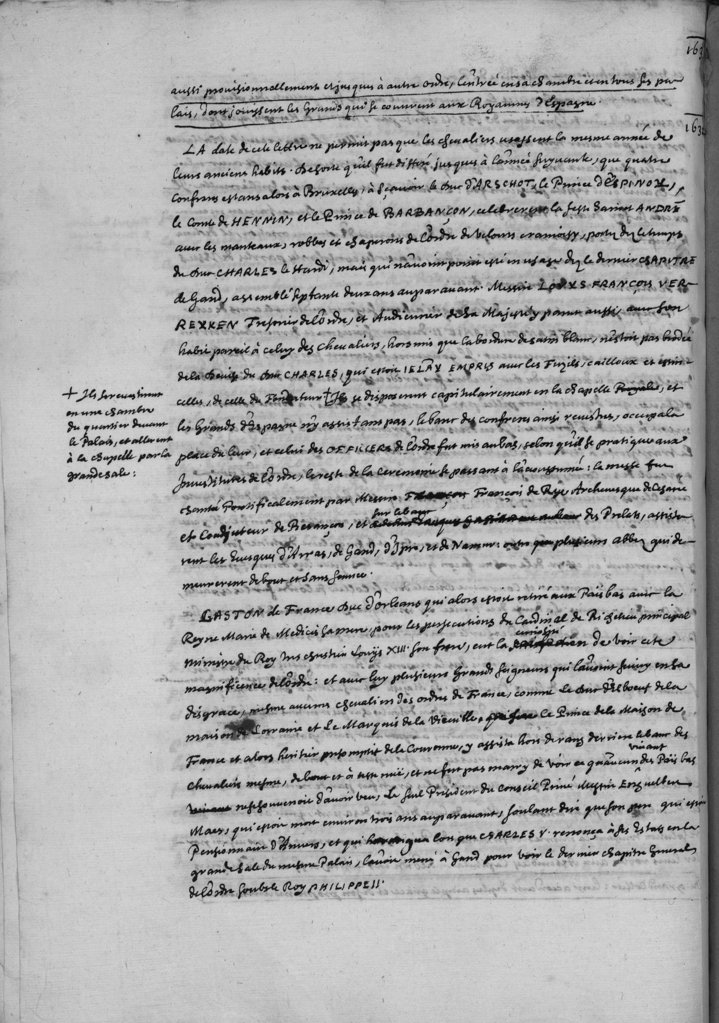 aussi provisionnellement et jusques à autre ordre, l'entrée en sa chambre et en tous ses pa-
lais, dont jouissent les Grands qui se couvrent aux Royaumes d'Espagne.
LA date de cete lettre ne permit pas que les chevaliers usassent la mesme année de
leurs anciens habits. De sorte qu'il fut differé jusques à l'année suyvante, que quatre
Confreres estans alors à Bruxelles, à sçavoir le Duc d'ARSCHOT, le Prince d'ESPINOY,
le Comte de HENNIN, et le Prince de BARBANÇON, celebrerent la feste de saint ANDRÉ
avec les manteaux, robbes et chaperons de l'ordre de velours cramoisy, portez dez le temps
du Duc CHARLES le Hardi, mais qui n'avoint point esté en usage dez le dernier CHAPITRE
de Gand, assemblé septante deux ans auparavant. Messire LOUYS FRANÇOIS VER-
REYKEN Tresorier de l'ordre, et Audiencier de Sa Majesté y parut aussi avec son
habit pareil à celuy des Chevaliers, hors mis que la bordure de satin blanc, n'estoit pas brodée
de la Devise du Duc CHARLES, qui estoit IE L'AY EMPRIS avec les Fuzils, cailloux et estin-
celles, de celle du Fondateur + Ils se disposerent capitulairement en la chapelle Royale, et
les Grands d'Espagne n'y assistans pas, le banc des confreres ainsi revestus, occupa la
place du leur, et celui des OFFICIERS de l'ordre fut mis au bas, selon qu'il se pratique aux
Investitures de l'ordre, le reste de la Ceremonie se passant à l'accoustumé: la messe fut
chantée Pontificalement par Messire François de Rye Archevesque de Cesarée
et Coadjuteur de Besançon, et sur le banc des Prelats, assiste-
rent les Evesques d'Arras, de Gand, d'Ipre, et de Namur: plusieurs abbez qui de-
meurerent debout et sans seance.
+ Ils se revestirent
en une chambre
du quartier devant
le Palais, et allerent
à la chapelle par la
grande sale:
GASTON de France Duc d'Orleans qui alors estoit retiré aux Païs bas avec la
Royne Marie de Medicis sa mere, pour les persecutions du Cardinal de Richelieu principal
ministre du Roy tres chrestien Louys XIII son frere, eut la curiosité de voir cete
magnificence de l'ordre: et avec luy plusieurs Grands Seigneurs qui l'avoient suivy en sa
disgrace, mesme aucuns chevaliers des ordres de France, comme le Duc d'Elboeuf de la
maison de Lorraine et le Marquis de la Vieuville, le Prince de la Maison de
France et alors heritier presomptif de la Couronne, y assista hors de rang derriere le banc des
chevaliers mesme, debout et à teste nuë, et ne fut pas marry de voir ce qu'aucun des Païs bas vivant
ne se souvenoit d'avoir veu, le seul President du Conseil Privé Messire Engelbert
Maes, qui estoit mort environ trois ans auparavant, soulant dire que son pere qui estoit
Pensionnaire d'Anvers, et qui harangua lors que CHARLES V renonça à ses Estats en la
grande sale du mesme Palais, l'avoit mené à Gand pour voir le dernier chapitre General
de l'ordre soubs le Roy PHILIPPE II.